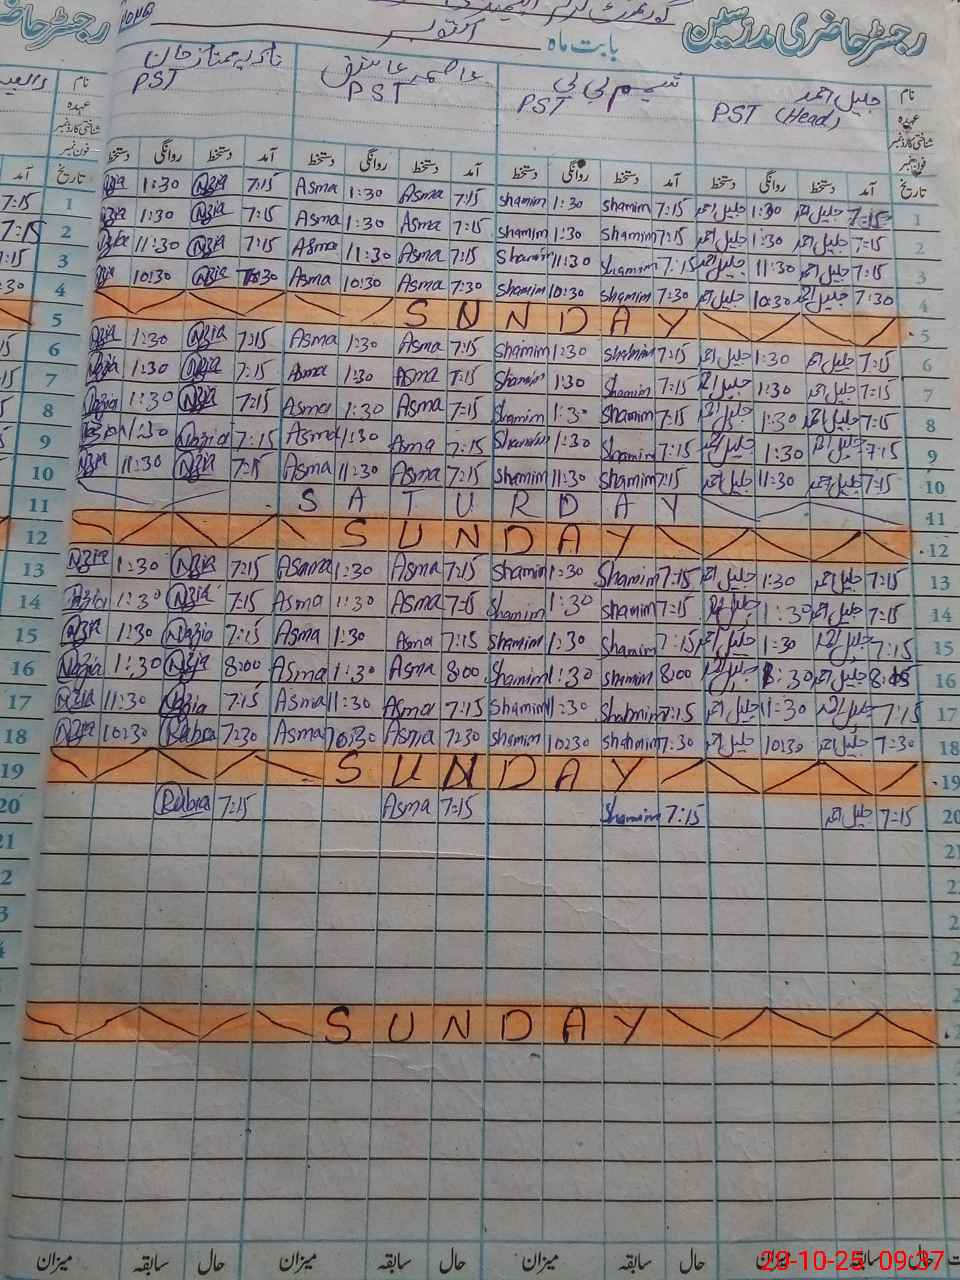 رجسٹر حاضری مدرسین بابت ماہ اکتوبر
نام جلیل احمد شمیم بی بی عاصمہ عاشق نادیہ ممتاز خان
عہدہ PST (Head) PST PST PST
شناختی کارڈ نمبر
فون نمبر
تاریخ آمد دستخط روانگی دستخط آمد دستخط روانگی دستخط آمد دستخط روانگی دستخط آمد دستخط روانگی دستخط
1 7:15 جلیل احمد 1:30 جلیل احمد 7:15 shamim 1:30 shamim 7:15 Asma 1:30 Asma 7:15 Nzia 1:30
2 7:15 جلیل احمد 1:30 جلیل احمد 7:15 shamim 1:30 shamim 7:15 Asma 1:30 Asma 7:15 Nzia 1:30
3 7:15 جلیل احمد 11:30 جلیل احمد 7:15 shamim 11:30 shamim 7:15 Asma 11:30 Asma 7:15 Nzia 11:30
4 7:30 جلیل احمد 10:30 جلیل احمد 7:30 shamim 10:30 shamim 7:30 Asma 10:30 Asma Nzia 10:30
5 SUNDAY
6 7:15 جلیل احمد 1:30 جلیل احمد 7:15 shamim 1:30 shamim 7:15 Asma 1:30 Asma 7:15 Nzia 1:30 Nzia
7 7:15 جلیل احمد 1:30 جلیل احمد 7:15 shamim 1:30 shamim 7:15 Asma 1:30 Asma 7:15 Nzia 1:30 Nzia
8 7:15 جلیل احمد 1:30 جلیل احمد 7:15 shamim 1:30 shamim 7:15 Asma 1:30 Asma 7:15 Nzia 1:30 Nazia
9 7:15 جلیل احمد 1:30 جلیل احمد 7:15 shamim 1:30 shamim 7:15 Asma 1:30 Asma 7:15 Nazia 1:30
10 7:15 جلیل احمد 11:30 جلیل احمد 7:15 shamim 11:30 shamim 7:15 Asma 11:30 Asma 7:15 Nzia 11:30 Nzia
11 SATURDAY
12 SUNDAY
13 7:15 جلیل احمد 1:30 جلیل احمد 7:15 Shamim 1:30 Shamim 7:15 Asma 1:30 Asma 7:15 Nzia 1:30 Nzia
14 7:15 جلیل احمد 1:30 جلیل احمد 7:15 shamim 1:30 shamim 7:15 Asma 1:30 Asma 7:15 Nzia 1:30
15 7:15 جلیل احمد 1:30 جلیل احمد 7:15 shamim 1:30 shamim 7:15 Asma 1:30 Asma 7:15 Nazia 1:30 Nzia
16 جلیل احمد 1:30 جلیل احمد 8:00 shamim 1:30 shamim 8:00 Asma 1:30 Asma 8:00 Nzia 1:30 Nazia
17 7:15 جلیل احمد 11:30 جلیل احمد 7:15 shamim 11:30 shamim 7:15 Asma 11:30 Asma 7:15 Nazia 11:30 Nzia
18 7:30 جلیل احمد 10:30 جلیل احمد 7:30 shamim 10:30 shamim 7:30 Asma 10:30 Asma 7:30 Rabia 10:30 Nzia
19 SUNDAY
20 7:15 جلیل احمد 7:15 Shamim 7:15 Asma 7:15 Rabia
21
SUNDAY
میزان حال سابقہ میزان حال سابقہ میزان حال سابقہ میزان
29-10-25 09:37